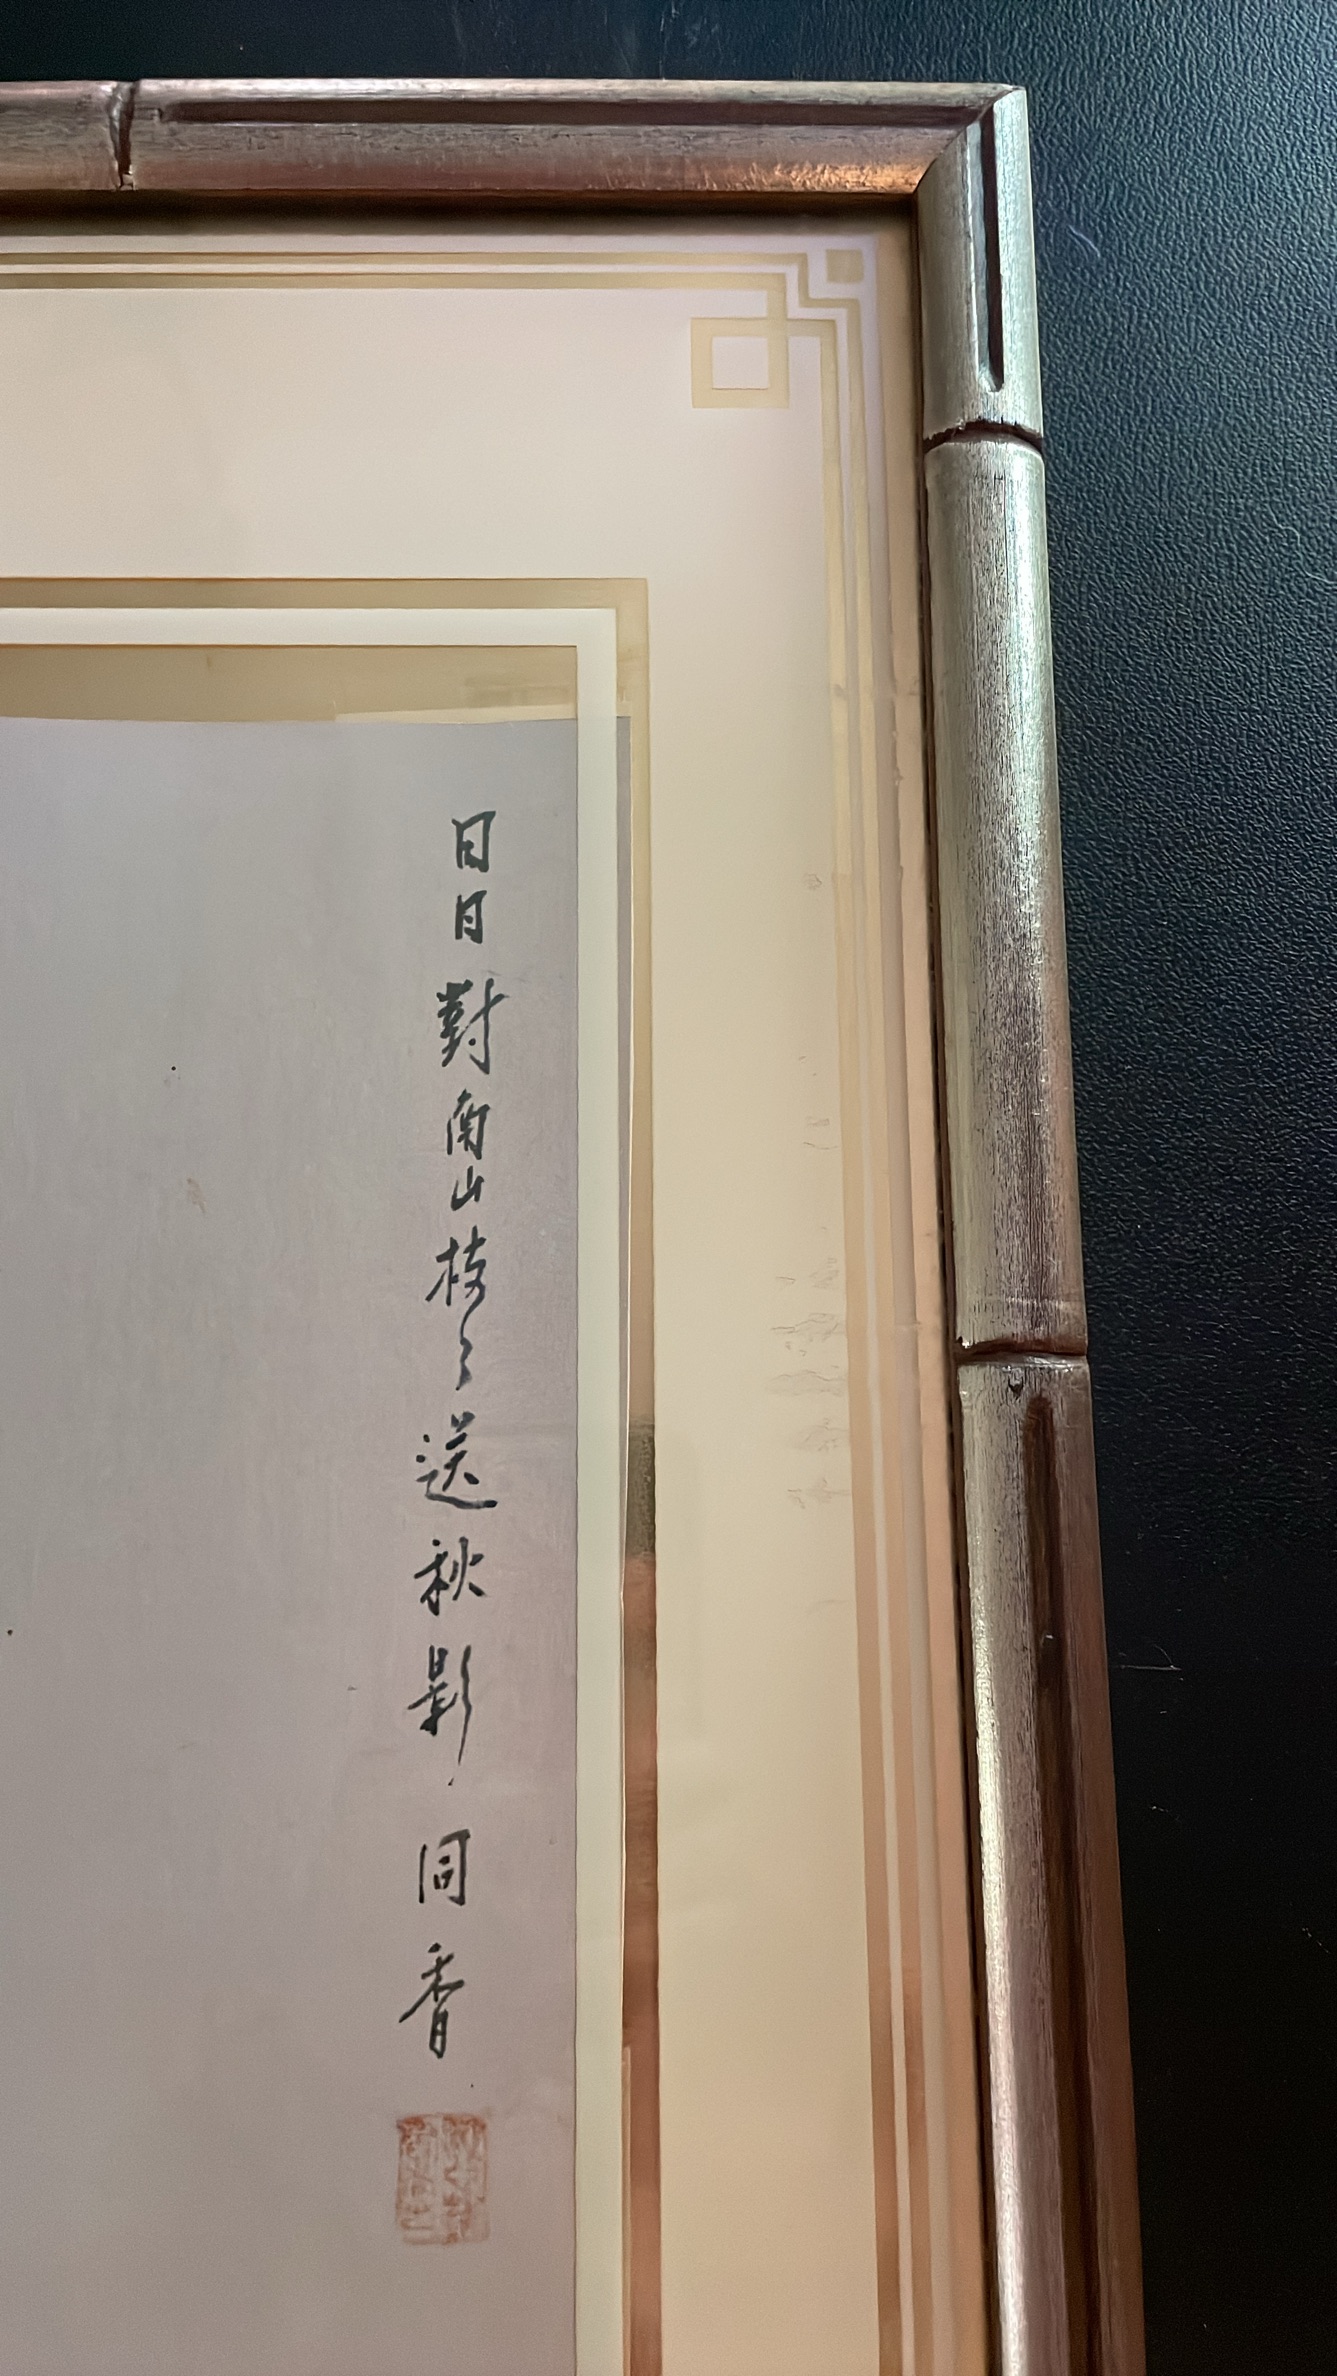 日日對南山枝〻送秋影 同香